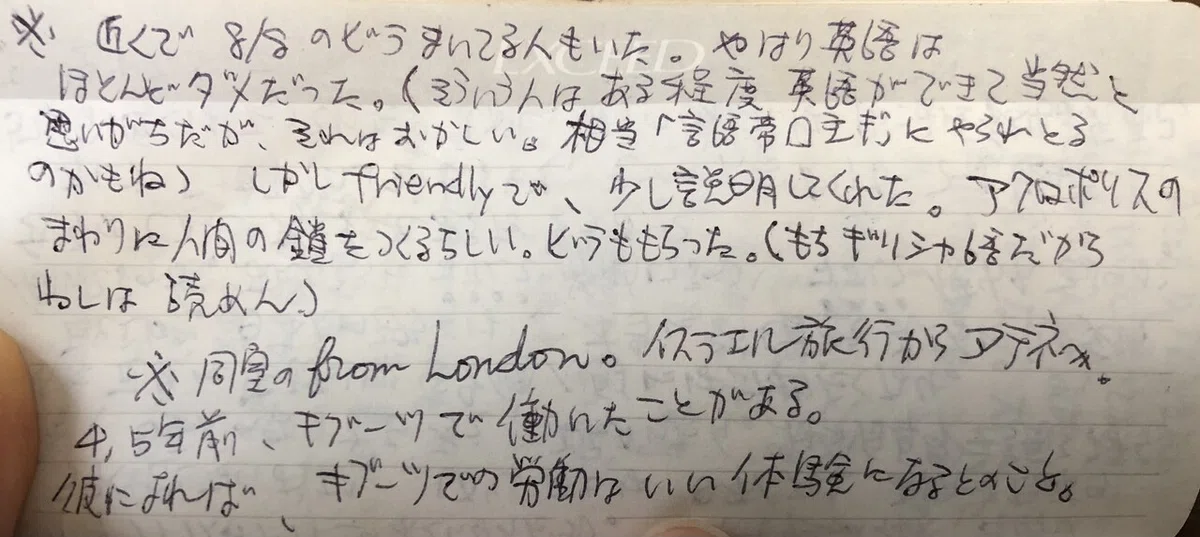 ※ 近くで 8/8 のビラまいてる人もいた。やはり英語は
ほとんどダメだった。(そういう人はある程度 英語ができて当然と
思いがちだが、それはおかしい。相当「言語帝口主ギ」にやられとる
のかもね) しかし friendly で、少し説明してくれた。アクロポリスの
まわりに人間の鎖をつくるらしい。ビラももらった。(もちギリシャ語だから
わしは 読めん)
※ 同室の from London。イスラエル旅行からアテネへ。
4,5年前、キブーツで働いたことがある。
彼によれば、キブーツでの労働はいい体験になるとのこと。
EXCEED